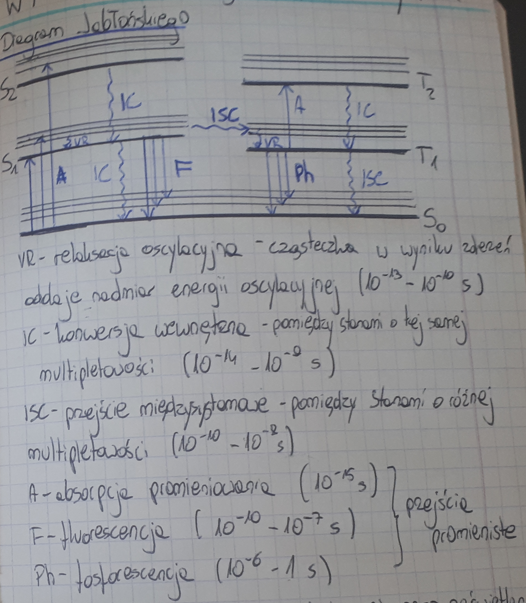 Diagram Jabłońskiego
S2
IC
T2
ISC
A
IC
VR
VR
T1
S1
A
IC
F
Ph
ISC
S0
VR - relaksacja oscylacyjna - cząsteczka w wyniku zderzeń
oddaje nadmiar energii oscylacyjnej (10⁻¹³ - 10⁻¹⁰ s)
IC - konwersja wewnętrzna - pomiędzy stanami o tej samej
multipletowości (10⁻¹⁴ - 10⁻⁹ s)
ISC - przejście międzysystemowe - pomiędzy stanami o różnej
multipletowości (10⁻¹⁰ - 10⁻⁸ s)
A - absorpcja promieniowania (10⁻¹⁵ s)
F - fluorescencja (10⁻¹⁰ - 10⁻⁷ s)
przejścia
promieniste
Ph - fosforescencja (10⁻⁶ - 1 s)